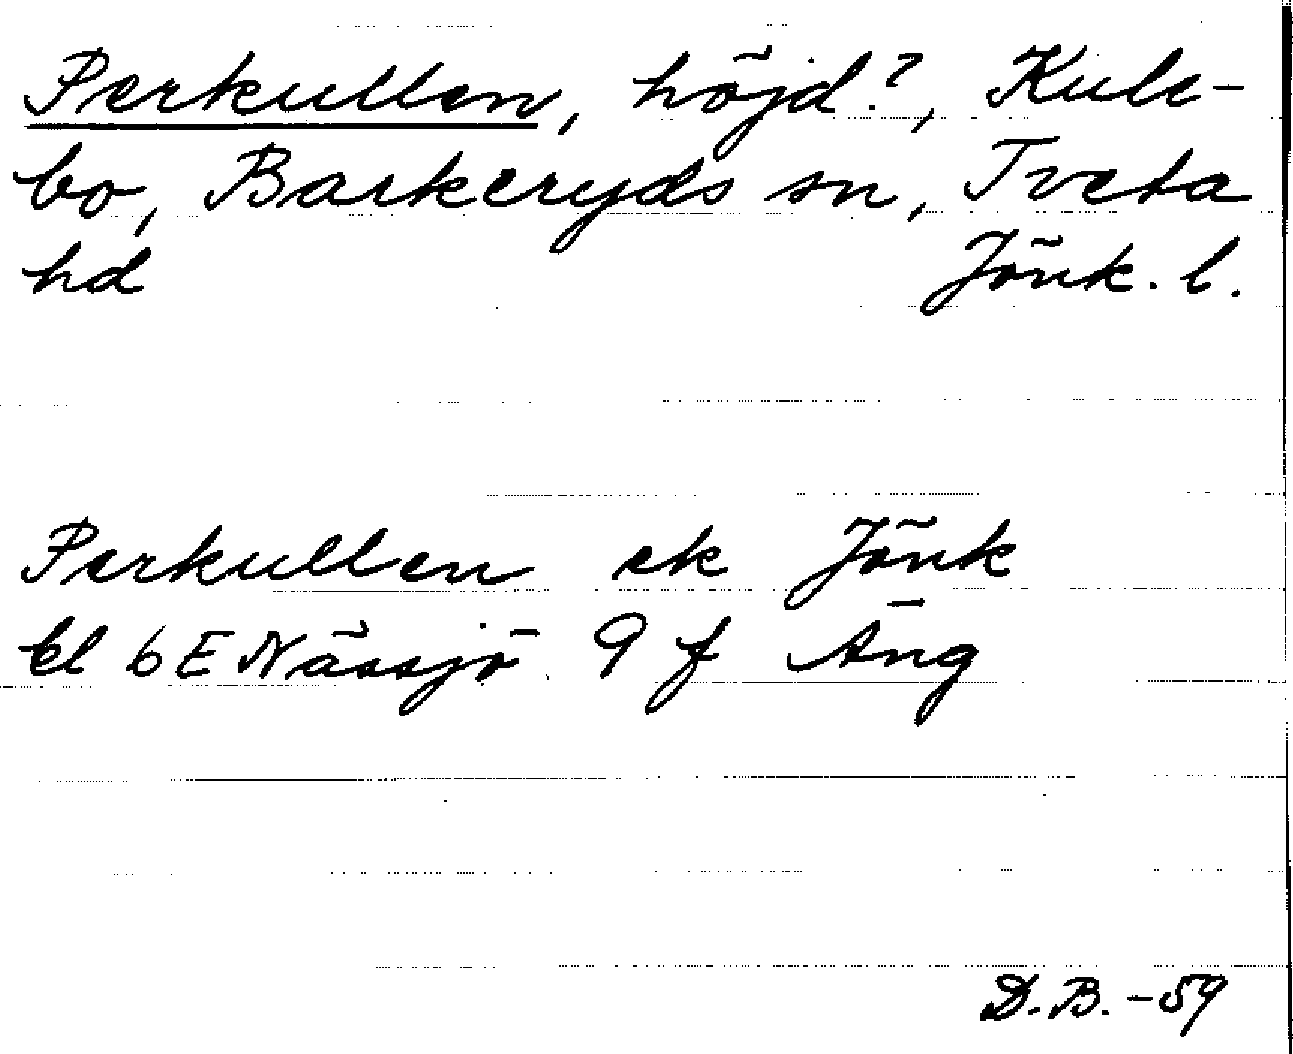 Perkullen, höjd?, Kule-
bo, Barkeryds sn, Tveta
hd Jönk. l.
Perkullen ek Jönk
bl 6 E Nässjö 9 f Äng
D.B. -59